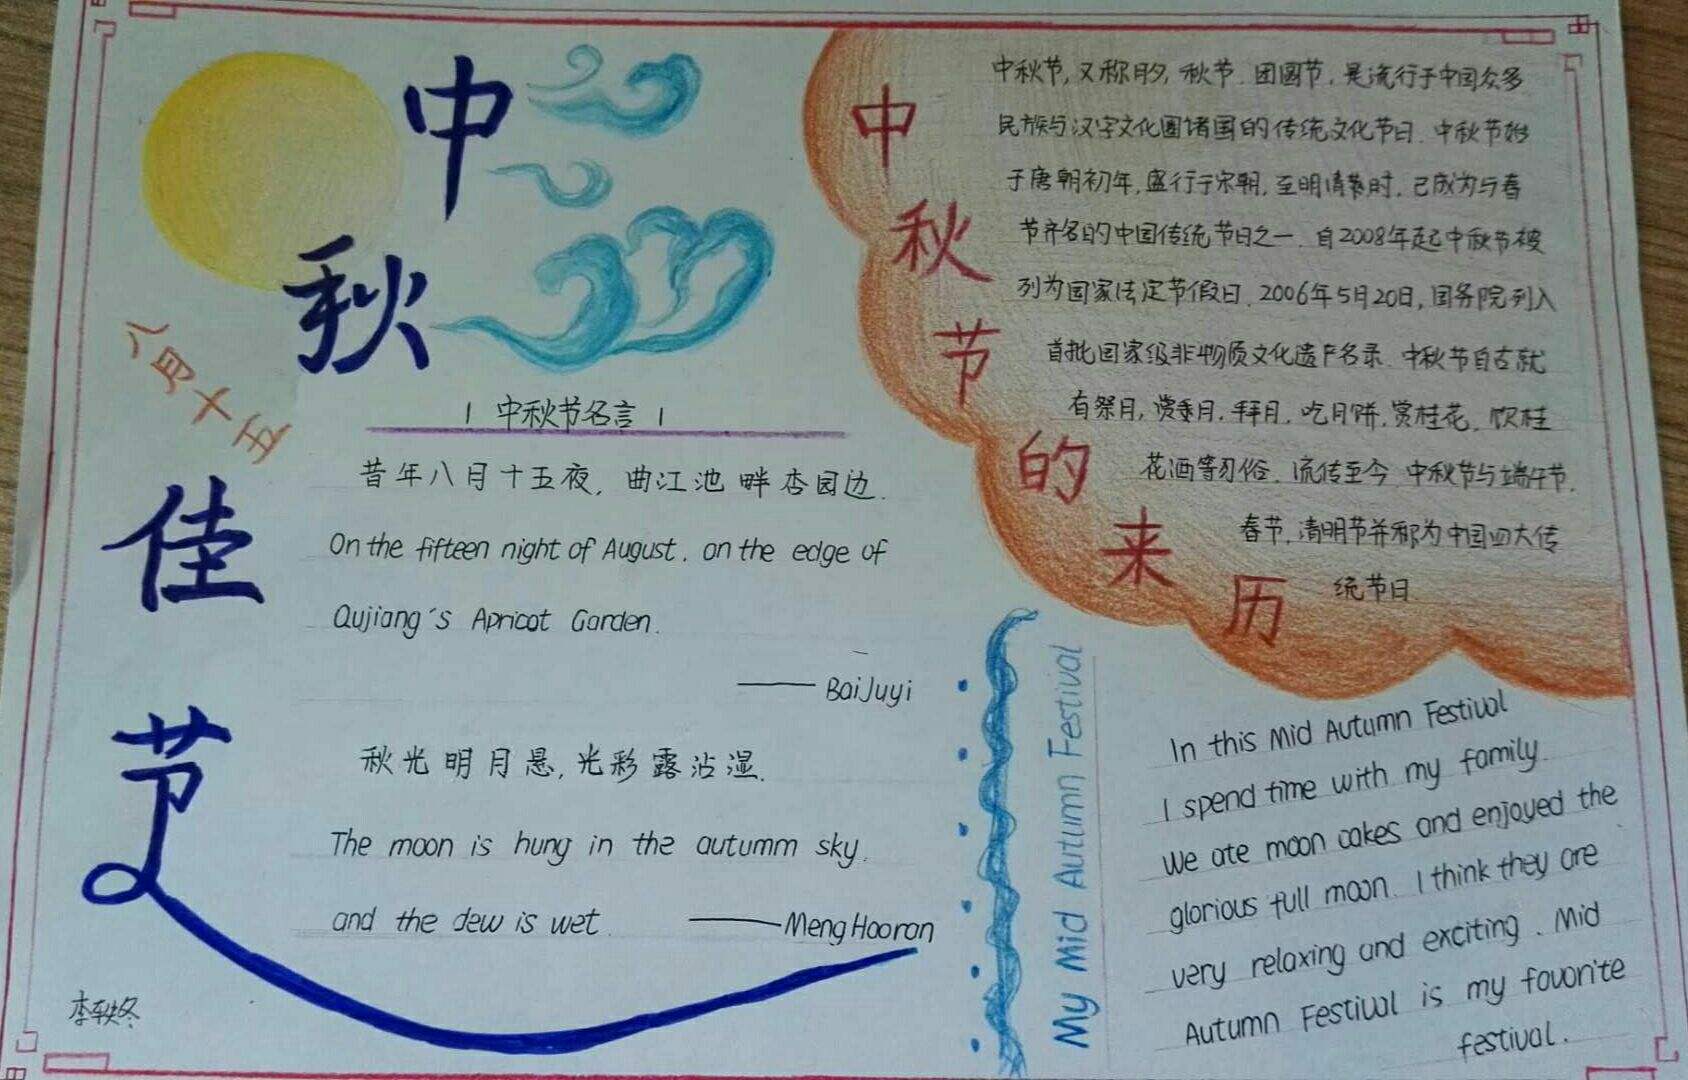 中
秋
佳
节
八月十五
中秋节名言
昔年八月十五夜, 曲江池畔杏园边.
On the fifteen night of August. on the edge of
Qujiang's Apricot Garden.
—— BaiJuyi
秋光明月悬, 光彩露沾湿.
The moon is hung in the autumm sky.
and the dew is wet. ——MengHaoran
李轶冬
中
秋
节
的
来
历
中秋节, 又称月夕, 秋节. 团圆节. 是流行于中国众多
民族与汉字文化圈诸国的传统文化节日. 中秋节始
于唐朝初年, 盛行于宋朝, 至明清时, 已成为与春
节齐名的中国传统节日之一. 自2008年起中秋节被
列为国家法定节假日. 2006年5月20日, 国务院列入
首批国家级非物质文化遗产名录. 中秋节自古就
有祭月, 赏月. 拜月. 吃月饼. 赏桂花, 饮桂
花酒等习俗. 流传至今. 中秋节与端午节.
春节, 清明节并称为中国四大传
统节日.
My Mid Autumn Festival
In this Mid Autumn Festival
I spend time with my family.
We ate moon cakes and enjoyed the
glorious full moon. I think they are
very relaxing and exciting. Mid
Autumn Festival is my favorite
festival.